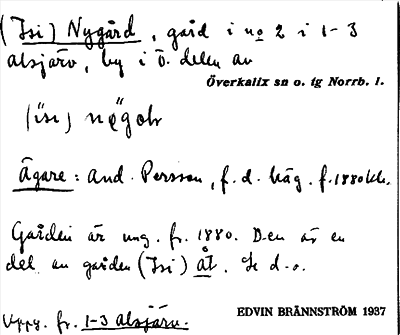 (Isi) Nygård, gård i no 2 i 1-3
alsjärv, by i ö. delen av
Överkalix sn o. tg Norrb. l.
(isi) nẹgoḷṛ
Ägare: And. Persson, f.d. häg. f. 1880
Gården är ung. fr. 1880. Den är en
del av gården (Isi) åt. Se d.o.
Uppg. fr. 1-3 alsjärv.
EDVIN BRÄNNSTRÖM 1937